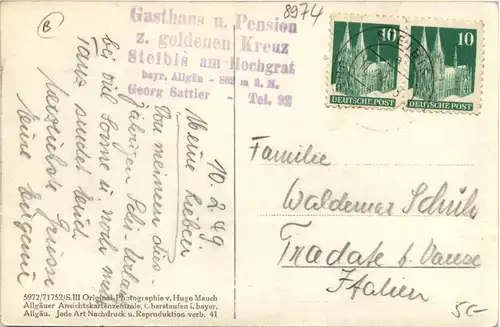 8974
B
Gasthaus u. Pension
z. goldenen Kreuz
Steibis am Hochgrat
bayr. Allgäu - 862 m ü. M.
Georg Sattler - Tel. 92
10
10
DEUTSCHE POST
DEUTSCHE POST
10. 2. 49
Meine Lieben
Von meinem dies-
jährigen Ski Urlaub
bei viel Sonne u. noch mehr
Tanz sendet Euch
herzlichste Grüsse
Eugenie
Familie
Waldemar Schüle
Tradate b. Varese
Italien
5972/71752/S.III Original-Photographie v. Hugo Mauch
Allgäuer Ansichtskartenzentrale, Oberstaufen i. bayer.
Allgäu. Jede Art Nachdruck u. Reproduktion verb. 41
5.-